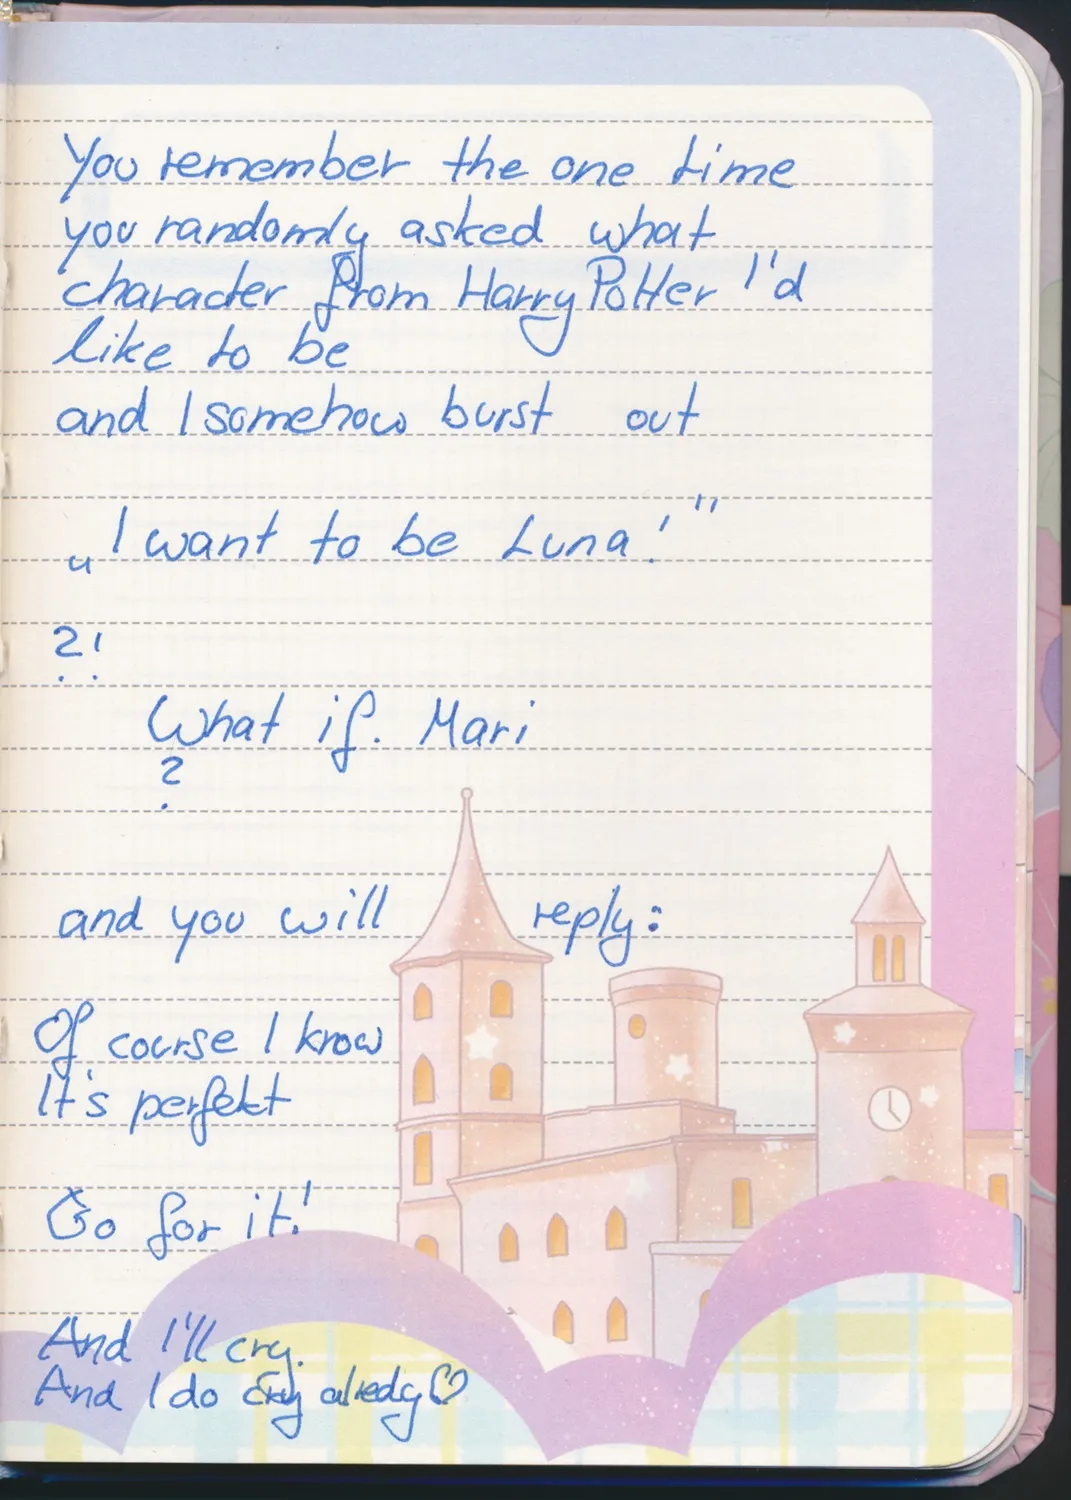 You remember the one time
you randomly asked what
character from Harry Potter I'd
like to be
and I somehow burst out
„I want to be Luna!"
?!
What if. Mari
?
and you will reply:
Of course I know
It's perfekt
Go for it!
And I'll cry.
And I do cry alredy♡